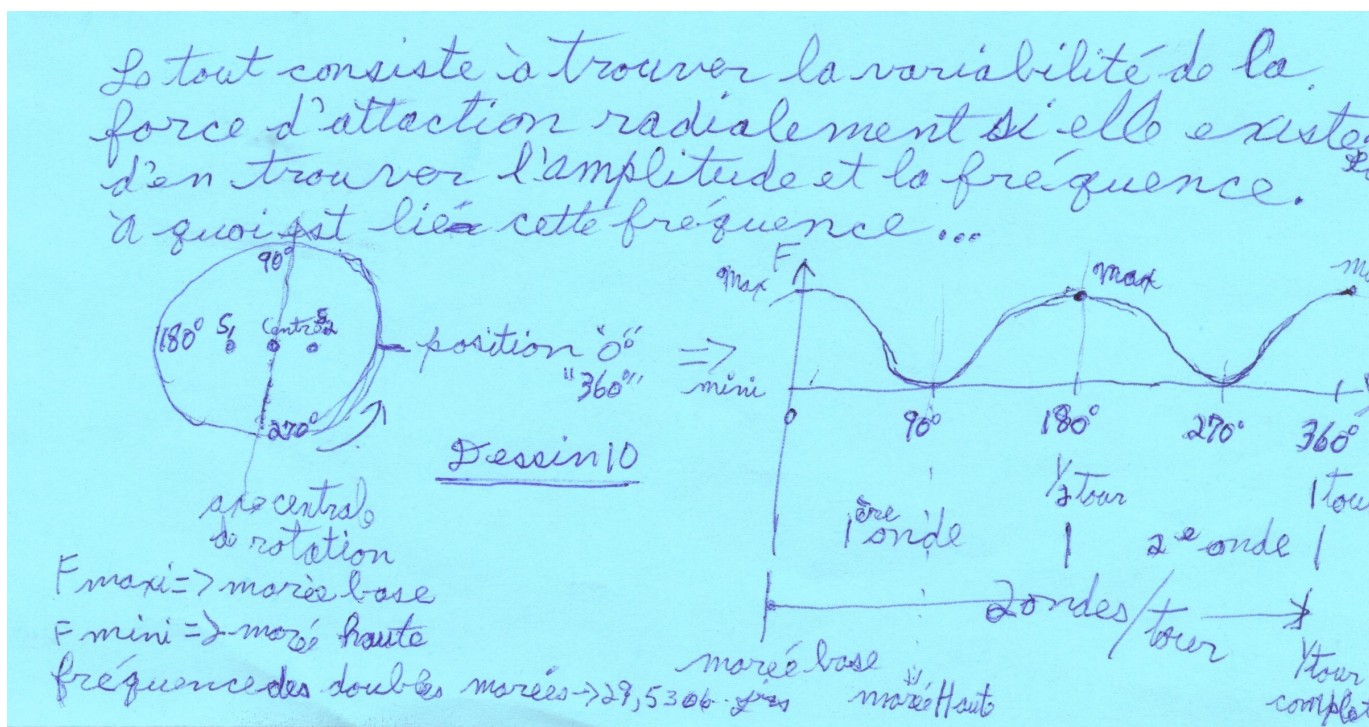 Le tout consiste à trouver la variabilité de la
force d'attaction radialement si elle existe
d'en trouver l'amplitude et la fréquence.
à quoi est liée cette fréquence ...
90°
180° S1 centro S2
position "0°"
"360°"
270°
Dessin 10
axe central
de rotation
F maxi => marée base
F mini => maré haute
fréquence des doubles marées -> 29,5306 jrs
F
Max
Max
=>
mini
0 90° 180° 270° 360°
1/2 tour
1 tou
1ère onde
2e onde
2 ondes/tour
marée base
marée Haute
1 tour
comple